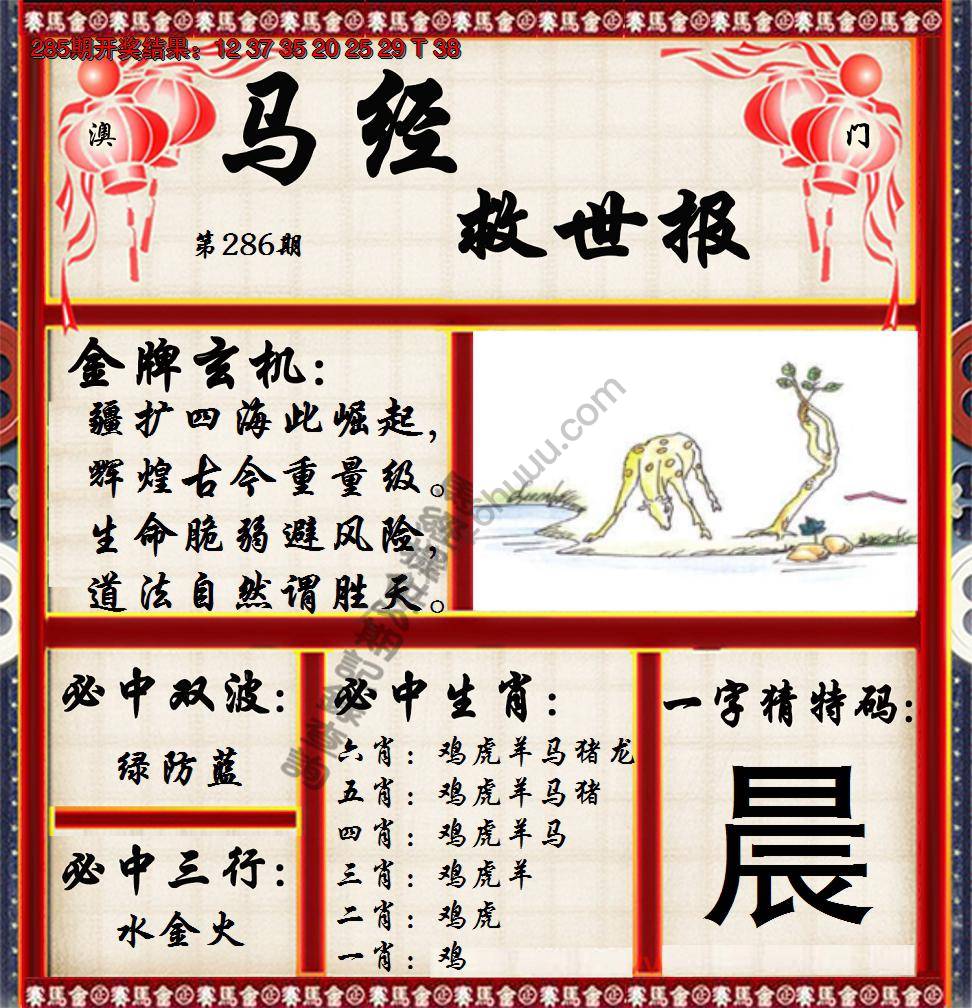 285期开奖结果：12 37 35 20 25 29 T 38
澳
门
马经
救世报
第286期
金牌玄机：
疆扩四海此崛起，
辉煌古今重量级。
生命脆弱避风险，
道法自然谓胜天。
必中双波：
绿防蓝
必中三行：
水金火
必中生肖：
六肖：鸡虎羊马猪龙
五肖：鸡虎羊马猪
四肖：鸡虎羊马
三肖：鸡虎羊
二肖：鸡虎
一肖：鸡
一字猜特码：
晨